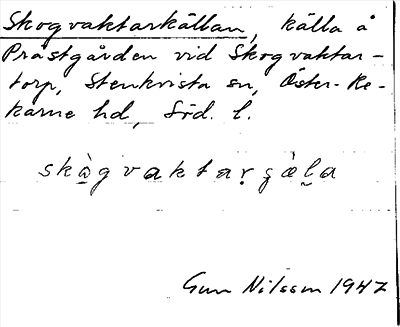 Skogvaktarkällan, källa å
Prästgården vid Skogvaktar-
torp, Stenkvista sn, Öster-Re-
karne hd, Söd. l.
skògvaktarçè̀la
Gun Nilsson 1947